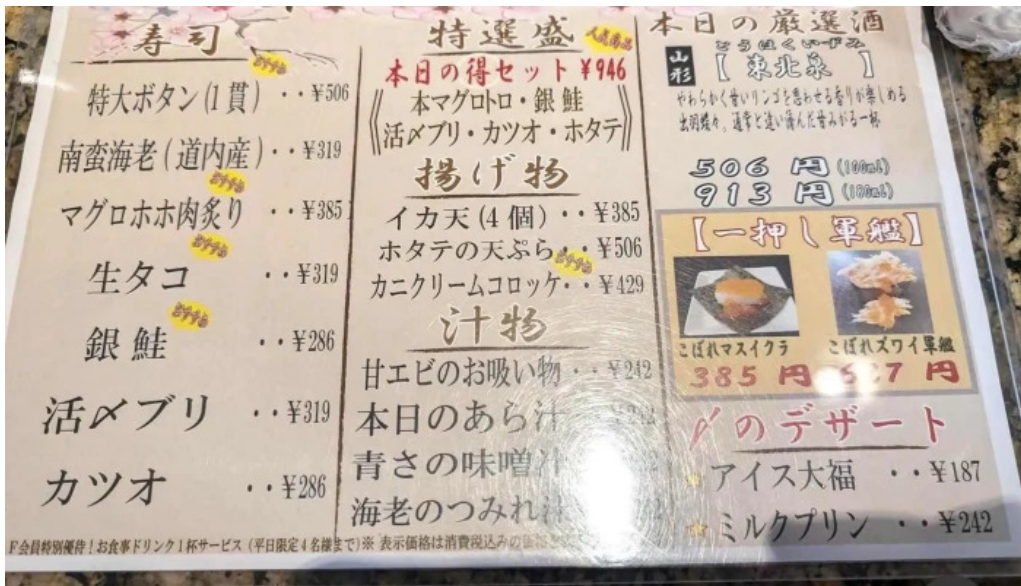 寿司
おすすめ
特大ボタン(1貫)‥¥506
南蛮海老(道内産)‥¥319
おすすめ
マグロホホ肉炙り ‥¥385
おすすめ
生タコ ‥¥319
おすすめ
銀鮭 ‥¥286
活〆ブリ ‥¥319
カツオ ‥¥286
特選盛
人気商品
本日の得セット¥946
本マグロトロ・銀鮭
活〆ブリ・カツオ・ホタテ
揚げ物
イカ天(4個)‥¥385
ホタテの天ぷら‥¥506
おすすめ
カニクリームコロッケ‥¥429
汁物
甘エビのお吸い物‥¥242
本日のあら汁
青さの味噌汁
海老のつみれ汁
本日の厳選酒
山形
とうほくいずみ
【東北泉】
やわらかく甘いリンゴを思わせる香りが楽しめる
出羽燦々。通常と違い澄んだ甘みがる一杯
506円(100mL)
913円(180mL)
【一押し軍艦】
こぼれマスイクラ
385円
こぼれズワイ軍艦
円
〆のデザート
アイス大福 ‥¥187
ミルクプリン ‥¥242
F会員特別優待!お食事ドリンク1杯サービス(平日限定4名様まで)※表示価格は消費税込みの